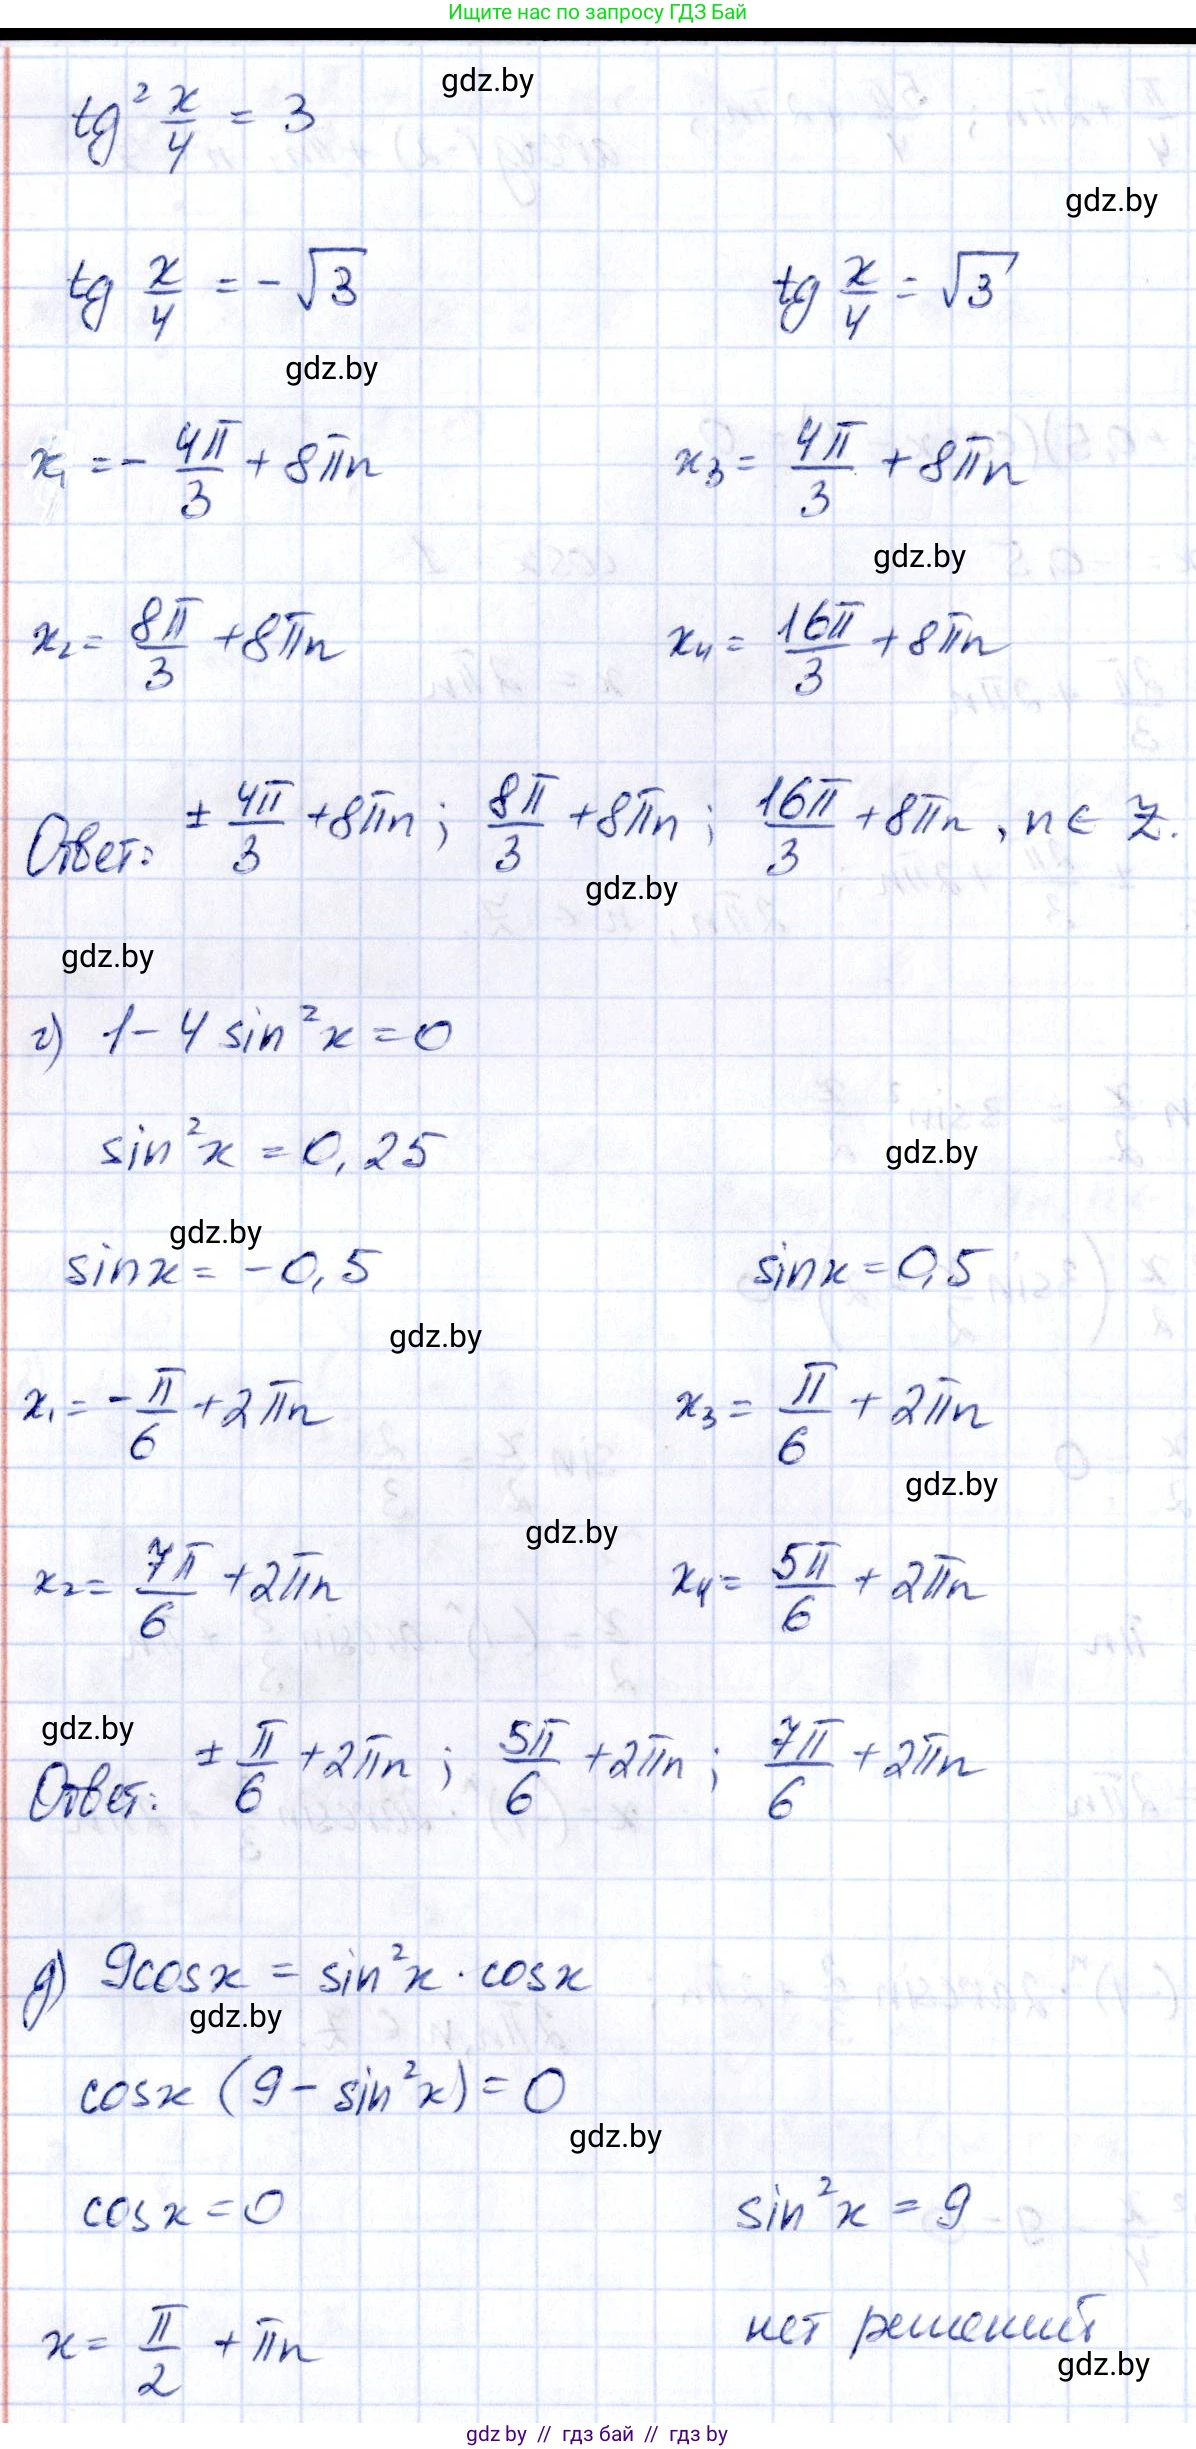 Ищите нас по запросу ГДЗ Бай
gdz.by
tg² x/4 = 3
gdz.by
tg x/4 = -√3    tg x/4 = √3
gdz.by
x₁ = - 4π/3 + 8πn    x₃ = 4π/3 + 8πn
gdz.by
x₂ = 8π/3 + 8πn    x₄ = 16π/3 + 8πn
Ответ: ± 4π/3 + 8πn ; 8π/3 + 8πn ; 16π/3 + 8πn , n ∈ Z.
gdz.by
gdz.by
г) 1 - 4 sin²x = 0
sin²x = 0,25
gdz.by
gdz.by
sinx = -0,5    sinx = 0,5
gdz.by
x₁ = - π/6 + 2πn    x₃ = π/6 + 2πn
gdz.by
gdz.by
x₂ = 7π/6 + 2πn    x₄ = 5π/6 + 2πn
gdz.by
Ответ: ± π/6 + 2πn ; 5π/6 + 2πn ; 7π/6 + 2πn
д) 9cosx = sin²x · cosx
gdz.by
cosx (9 - sin²x) = 0
gdz.by
cosx = 0    sin²x = 9
x = π/2 + πn    нет решений
gdz.by
gdz by // гдз бай // гдз by